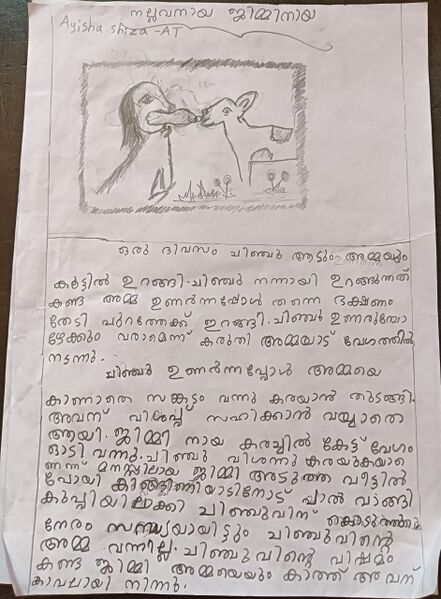 നല്ലവനായ ജിമ്മിനായ
Ayisha shiza - AT
ഒരു ദിവസം ചിഞ്ചു ആടും അമ്മയും
കൂട്ടിൽ ഉറങ്ങി. ചിഞ്ചു നന്നായി ഉറങ്ങുന്നത്
കണ്ട അമ്മ ഉണർന്നപ്പോൾ തന്നെ ഭക്ഷണം
തേടി പുറത്തേക്ക് ഇറങ്ങി. ചിഞ്ചു ഉണരുമ്പോ
ഴേക്കും വരാമെന്ന് കരുതി അമ്മയാട് വേഗത്തിൽ
നടന്നു.
ചിഞ്ചു ഉണർന്നപ്പോൾ അമ്മയെ
കാണാതെ സങ്കടം വന്നു കരയാൻ തുടങ്ങി.
അവന് വിശപ്പ് സഹിക്കാൻ വയ്യാതെ
ആയി. ജിമ്മി നായ കരച്ചിൽ കേട്ട് വേഗം
ഓടി വന്നു. ചിഞ്ചു വിശന്നു കരയുകയാ
ണന്ന് മനസ്സിലായ ജിമ്മി അടുത്ത വീട്ടിൽ
പോയി കിങ്ങിണിയാടിനോട് പാൽ വാങ്ങി
കുപ്പിയിലാക്കി ചിഞ്ചുവിന് കൊടുത്തു.
നേരം സന്ധ്യയായിട്ടും ചിഞ്ചുവിന്റെ
അമ്മ വന്നില്ല. ചിഞ്ചുവിന്റെ വിഷമം
കണ്ട ജിമ്മി അമ്മയെയും കാത്ത് അവന്
കാവലായി നിന്നു.